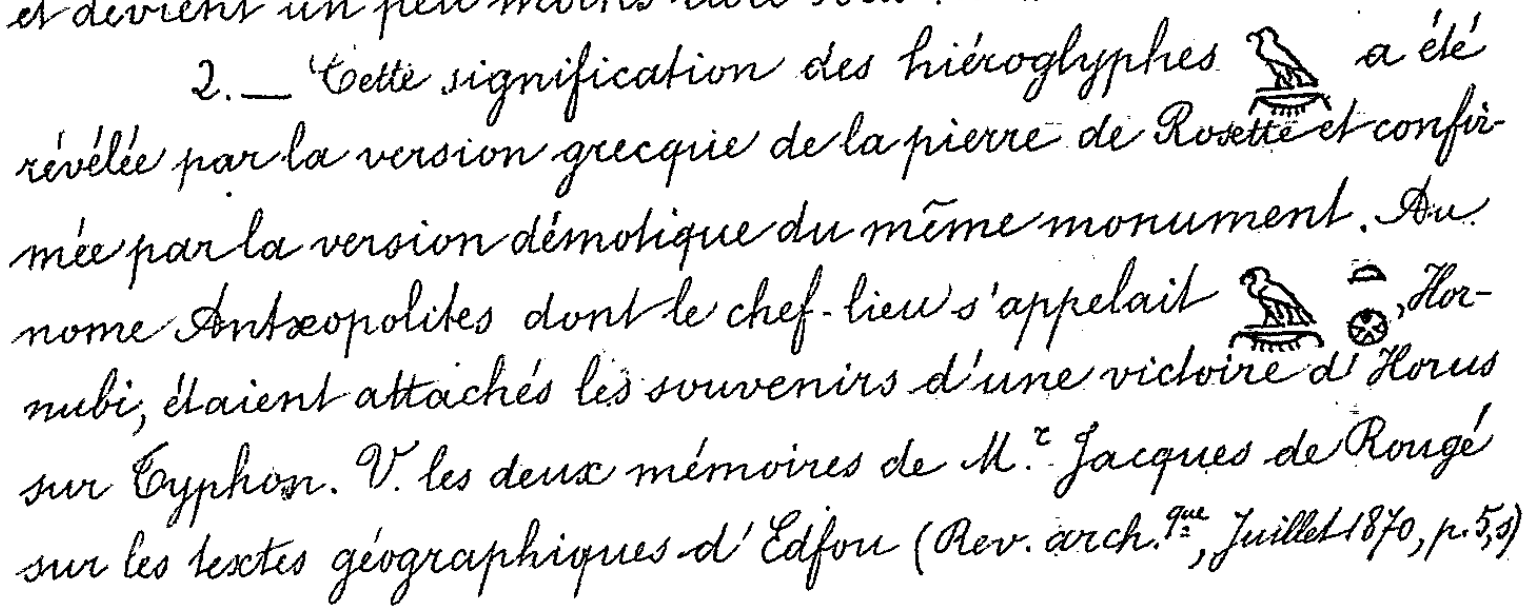 et devient un peu moins
2. — Cette signification des hiéroglyphes 𓅉 a été
révélée par la version grecque de la pierre de Rosette et confir-
mée par la version démotique du même monument. Au
nome Antæopolites dont le chef-lieu s'appelait 𓅉𓏏𓊖, Hor-
nubi, étaient attachés les souvenirs d'une victoire d'Horus
sur Typhon. V. les deux mémoires de M.r Jacques de Rougé
sur les textes géographiques d'Edfou (Rev. arch.que, Juillet 1870, p. 5, s)